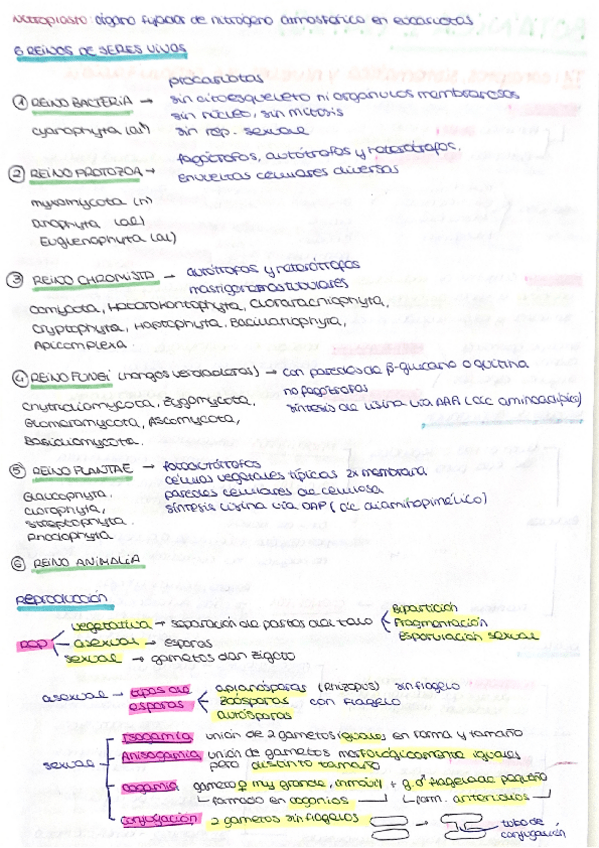 Nitroplasto: órgano fijador de nitrógeno atmosférico en eucariotas
6 REINOS DE SERES VIVOS
procariotas
① REINO BACTERIA → sin citoesqueleto ni orgánulos membranosos
sin núcleo, sin mitosis
cyanophyta (al) sin rep. sexual
fagótrofos, autótrofos y heterótrofos.
② REINO PROTOZOA → envueltas celulares diversas
myxomycota (n)
dinophyta (al)
Euglenophyta (al)
③ REINO CHROMISTA → autótrofos y heterótrofos
mastigonemas tubulares
Oomycota, Heterokontophyta, Cloraracniophyta,
Cryptophyta, Haptophyta, Bacillariophyta,
Apicomplexa
④ REINO FUNGI (hongos verdaderos) → con paredes de β-glucano o quitina
no fagótrofos
Chytridiomycota, Zygomycota, síntesis de lisina vía AAA (ác aminoadípico)
Glomeromycota, Ascomycota,
Basidiomycota.
⑤ REINO PLANTAE → fotoautótrofos
células vegetales típicas 2x membrana
Glaucophyta. paredes celulares de celulosa
clorophyta, síntesis lisina vía DAP (ác diaminopimélico)
streptophyta.
Rhodophyta
⑥ REINO ANIMALIA
Reproducción
vegetativa → separación de partes del talo Bipartición
Fragmentación
Esporulación sexual
rep asexual → esporas
sexual → gametos dan zigoto
asexual → tipos de esporas aplanósporas (Rhizopus) sin flagelo
zoósporas con flagelo
autósporas
sexual Isogamia unión de 2 gametos iguales en forma y tamaño
Anisogamia unión de gametos morfológicamente iguales
pero distinto tamaño
oogamia gameto ♀ muy grande, inmóvil + g.♂ flagelado pequeño
formado en oogonios form. anteridios
conjugación 2 gametos sin flagelos → tubo de
conjugación